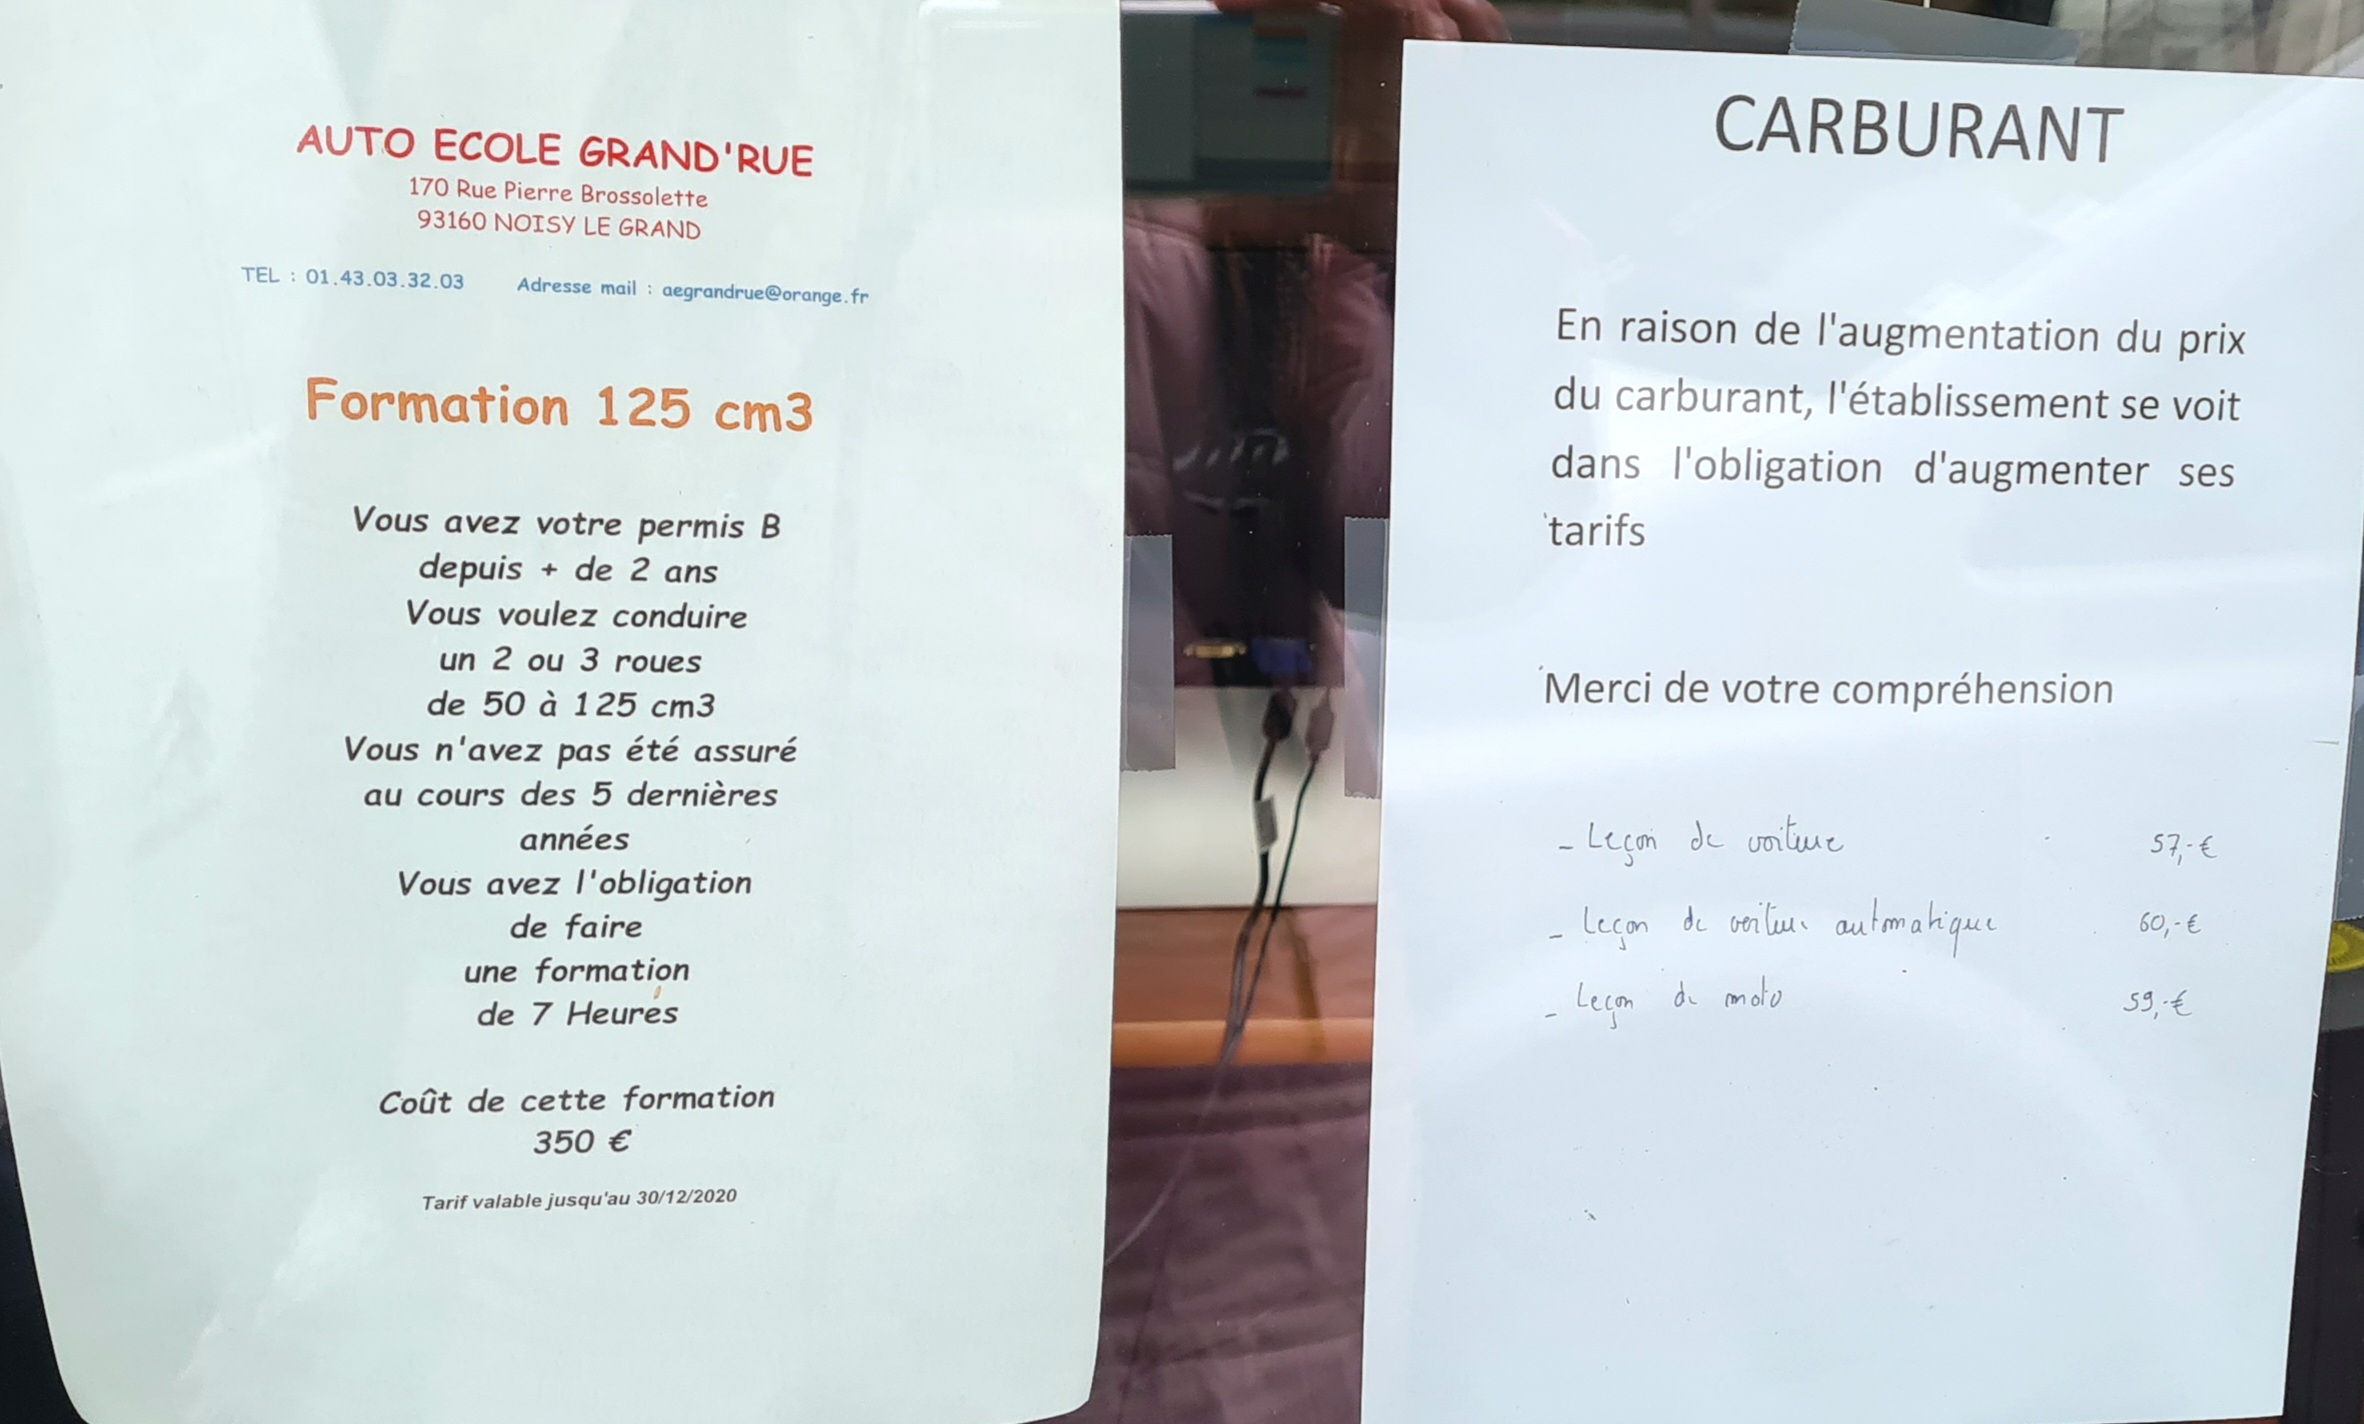 AUTO ECOLE GRAND'RUE
170 Rue Pierre Brossolette
93160 NOISY LE GRAND
TEL : 01.43.03.32.03 Adresse mail : aegrandrue@orange.fr
Formation 125 cm3
Vous avez votre permis B
depuis + de 2 ans
Vous voulez conduire
un 2 ou 3 roues
de 50 à 125 cm3
Vous n'avez pas été assuré
au cours des 5 dernières
années
Vous avez l'obligation
de faire
une formation
de 7 Heures
Coût de cette formation
350 €
Tarif valable jusqu'au 30/12/2020
CARBURANT
En raison de l'augmentation du prix
du carburant, l'établissement se voit
dans l'obligation d'augmenter ses
tarifs
Merci de votre compréhension
- Leçon de voiture 57,-€
- Leçon de voiture automatique 60,-€
- Leçon de moto 59,-€